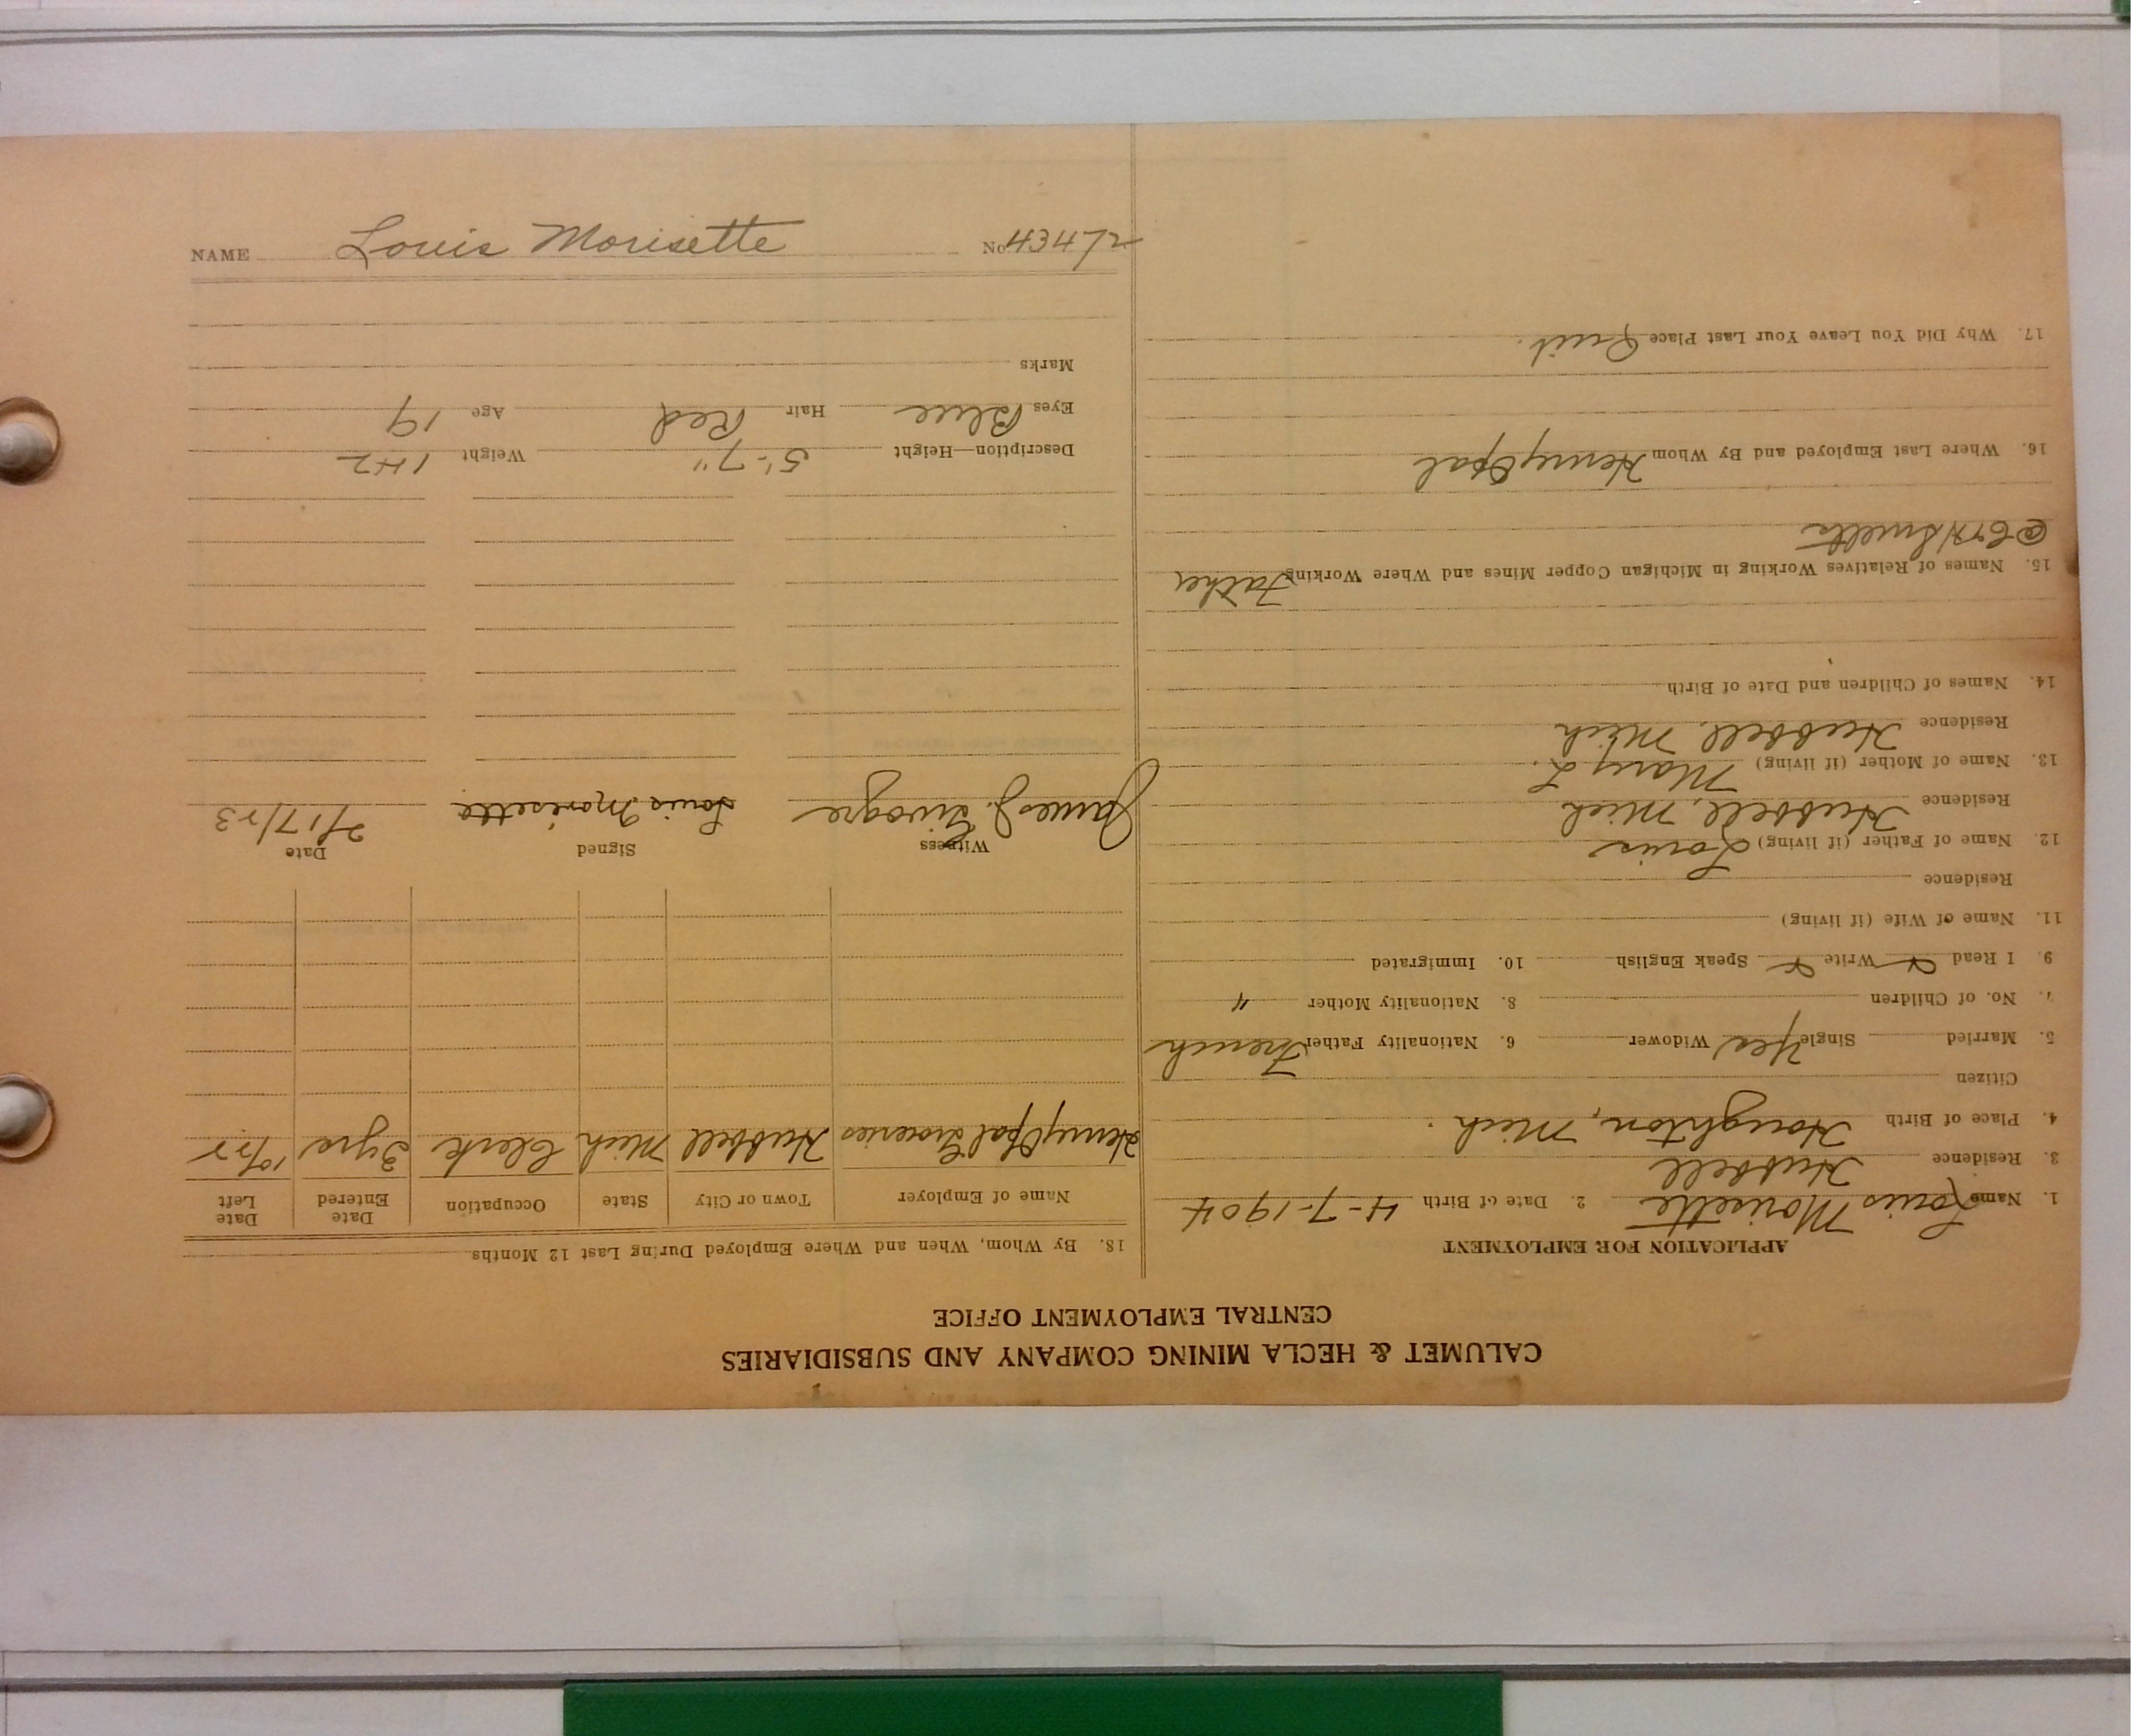 CALUMET & HECLA MINING COMPANY AND SUBSIDIARIES
CENTRAL EMPLOYMENT OFFICE
APPLICATION FOR EMPLOYMENT
1. Name Louis Morisette 2. Date of Birth 4-7-1904
3. Residence Hubbell
4. Place of Birth Houghton, Mich.
Citizen
5. Married Single Yes Widower 6. Nationality Father French
7. No. of Children 8. Nationality Mother "
9. I Read Write Speak English 10. Immigrated
11. Name of Wife (if living)
Residence
12. Name of Father (if living) Louis
Residence Hubbell, Mich
13. Name of Mother (if living) Mary L.
Residence Hubbell, Mich
14. Names of Children and Date of Birth
15. Names of Relatives Working in Michigan Copper Mines and Where Working Father
@ C & H Smelter
16. Where Last Employed and By Whom Henry Opal
17. Why Did You Leave Your Last Place Quit.
18. By Whom, When and Where Employed During Last 12 Months
Name of Employer Town or City State Occupation Date Entered Date Left
Henry Opal Groceries Hubbell Mich Clerk 3 yrs 10/22
Witness Signed Date
James J. Louis Morisette 2/17/23
Description—Height 5'-7" Weight 142
Eyes Blue Hair Red Age 19
Marks
NAME Louis Morisette No. 43472